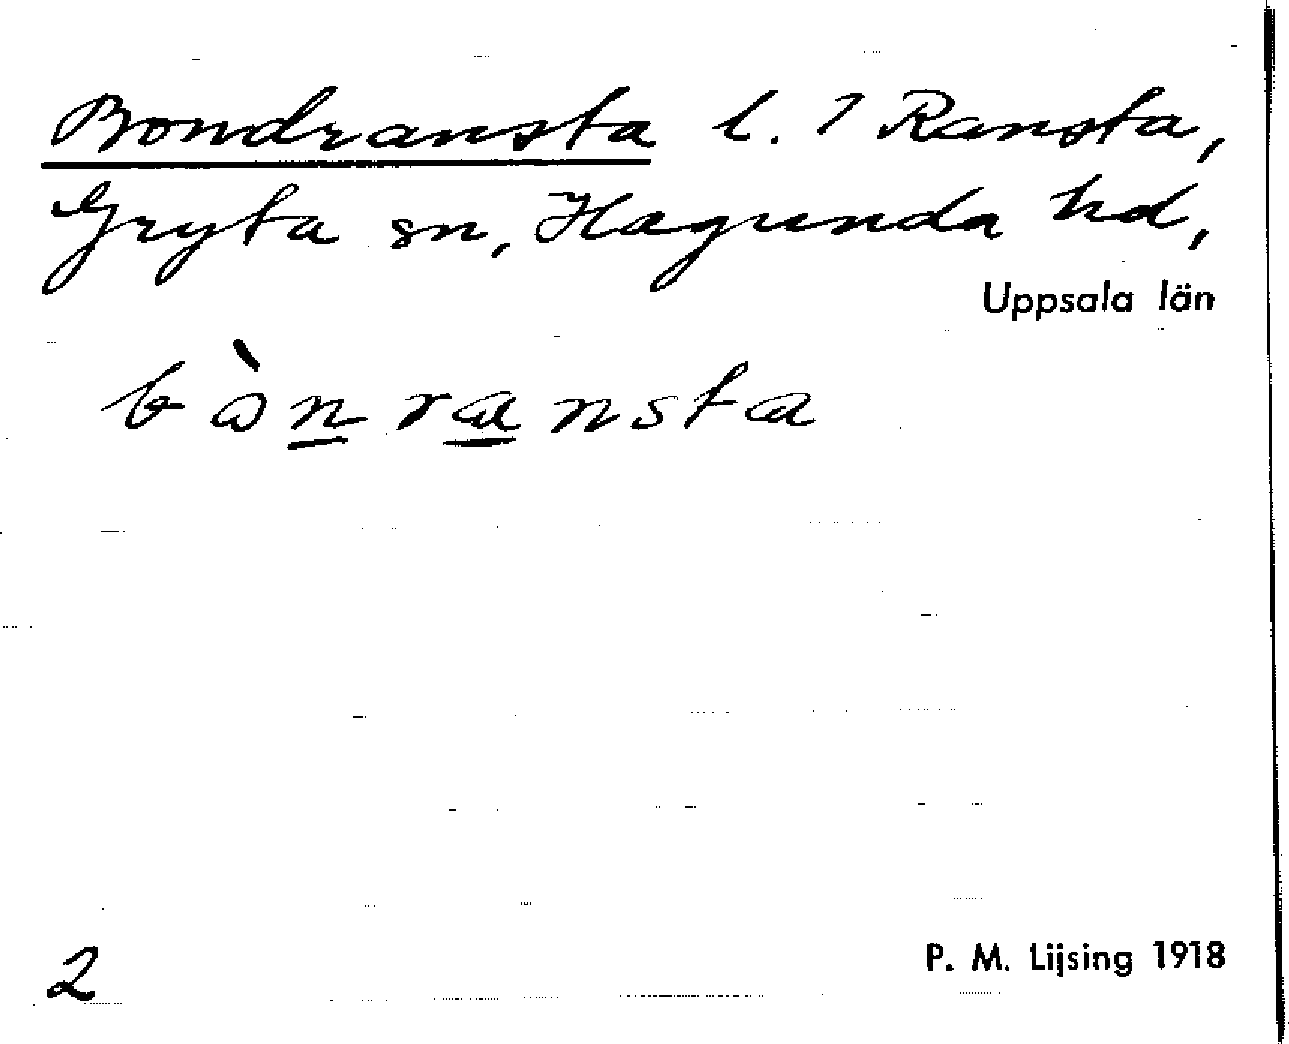 Bondransta l. 1 Ransta,
Gryta sn, Hagunda hd,
Uppsala län
bὸnransta
2
P. M. Lijsing 1918